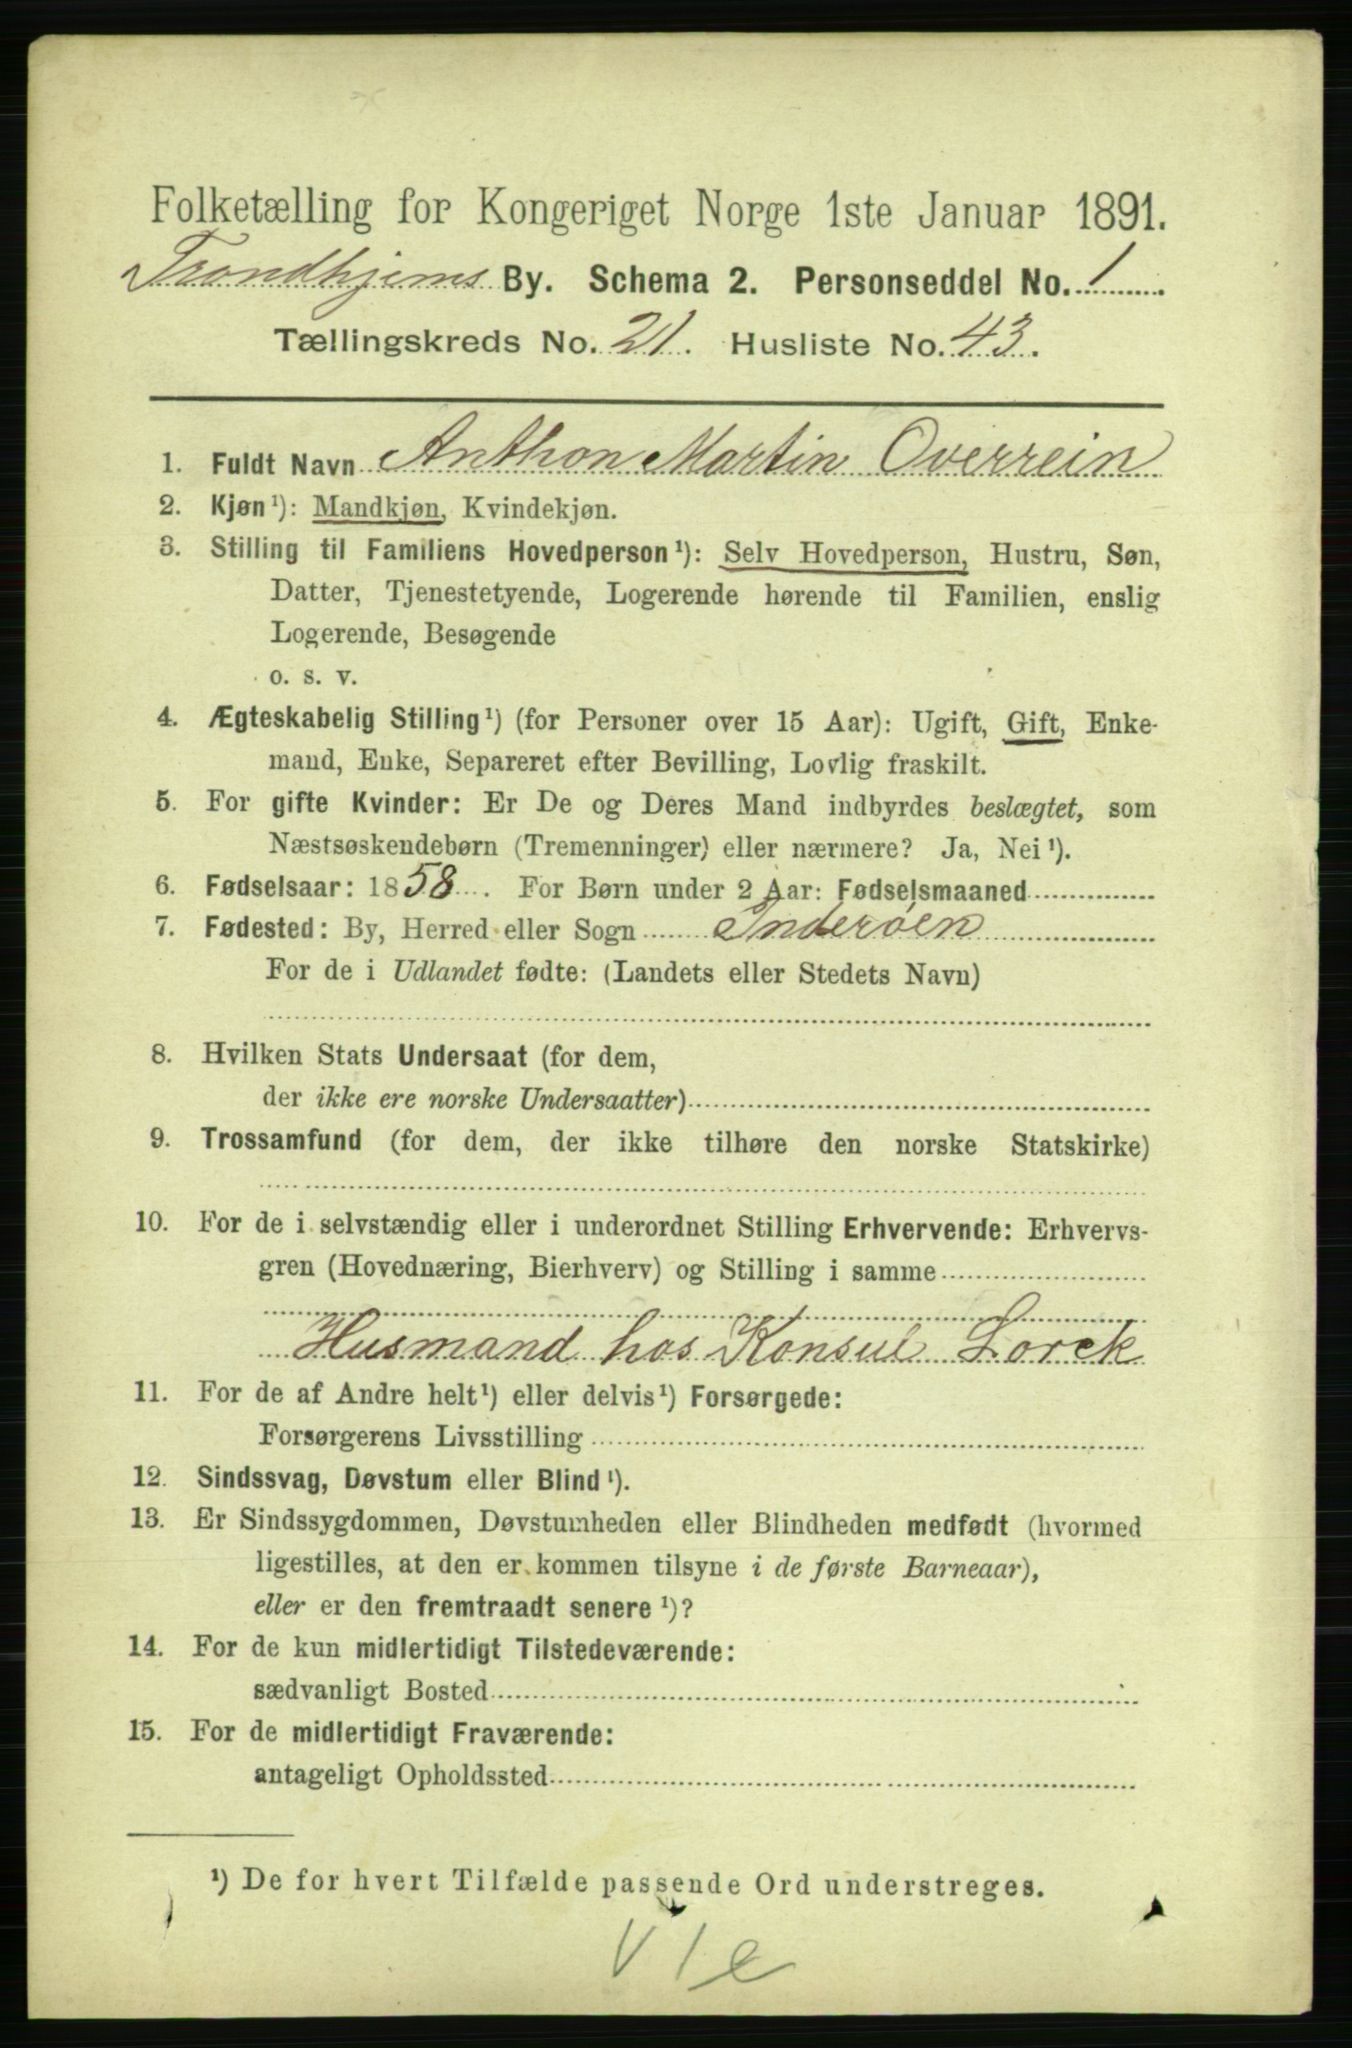 Folketælling for Kongeriget Norge 1ste Januar 1891.
Trondhjems By. Schema 2. Personseddel No. 1.
Tællingskreds No. 21. Husliste No. 43.
1. Fuldt Navn Anthon Martin Overrein
2. Kjøn¹): Mandkjøn, Kvindekjøn.
3. Stilling til Familiens Hovedperson¹): Selv Hovedperson, Hustru, Søn,
Datter, Tjenestetyende, Logerende hørende til Familien, enslig
Logerende, Besøgende
o. s. v.
4. Ægteskabelig Stilling¹) (for Personer over 15 Aar): Ugift, Gift, Enke-
mand, Enke, Separeret efter Bevilling, Lovlig fraskilt.
5. For gifte Kvinder: Er De og Deres Mand indbyrdes beslægtet, som
Næstsøskendebørn (Tremenninger) eller nærmere? Ja, Nei¹).
6. Fødselsaar: 1858. For Børn under 2 Aar: Fødselsmaaned
7. Fødested: By, Herred eller Sogn Inderøen
For de i Udlandet fødte: (Landets eller Stedets Navn)
8. Hvilken Stats Undersaat (for dem,
der ikke ere norske Undersaatter)
9. Trossamfund (for dem, der ikke tilhøre den norske Statskirke)
10. For de i selvstændig eller i underordnet Stilling Erhvervende: Erhvervs-
gren (Hovednæring, Bierhverv) og Stilling i samme
Husmand hos Konsul Lorck
11. For de af Andre helt¹) eller delvis¹) Forsørgede:
Forsørgerens Livsstilling
12. Sindssvag, Døvstum eller Blind¹).
13. Er Sindssygdommen, Døvstumheden eller Blindheden medfødt (hvormed
ligestilles, at den er kommen tilsyne i de første Barneaar),
eller er den fremtraadt senere¹)?
14. For de kun midlertidigt Tilstedeværende:
sædvanligt Bosted
15. For de midlertidigt Fraværende:
antageligt Opholdssted
¹) De for hvert Tilfælde passende Ord understreges.
V 1 e